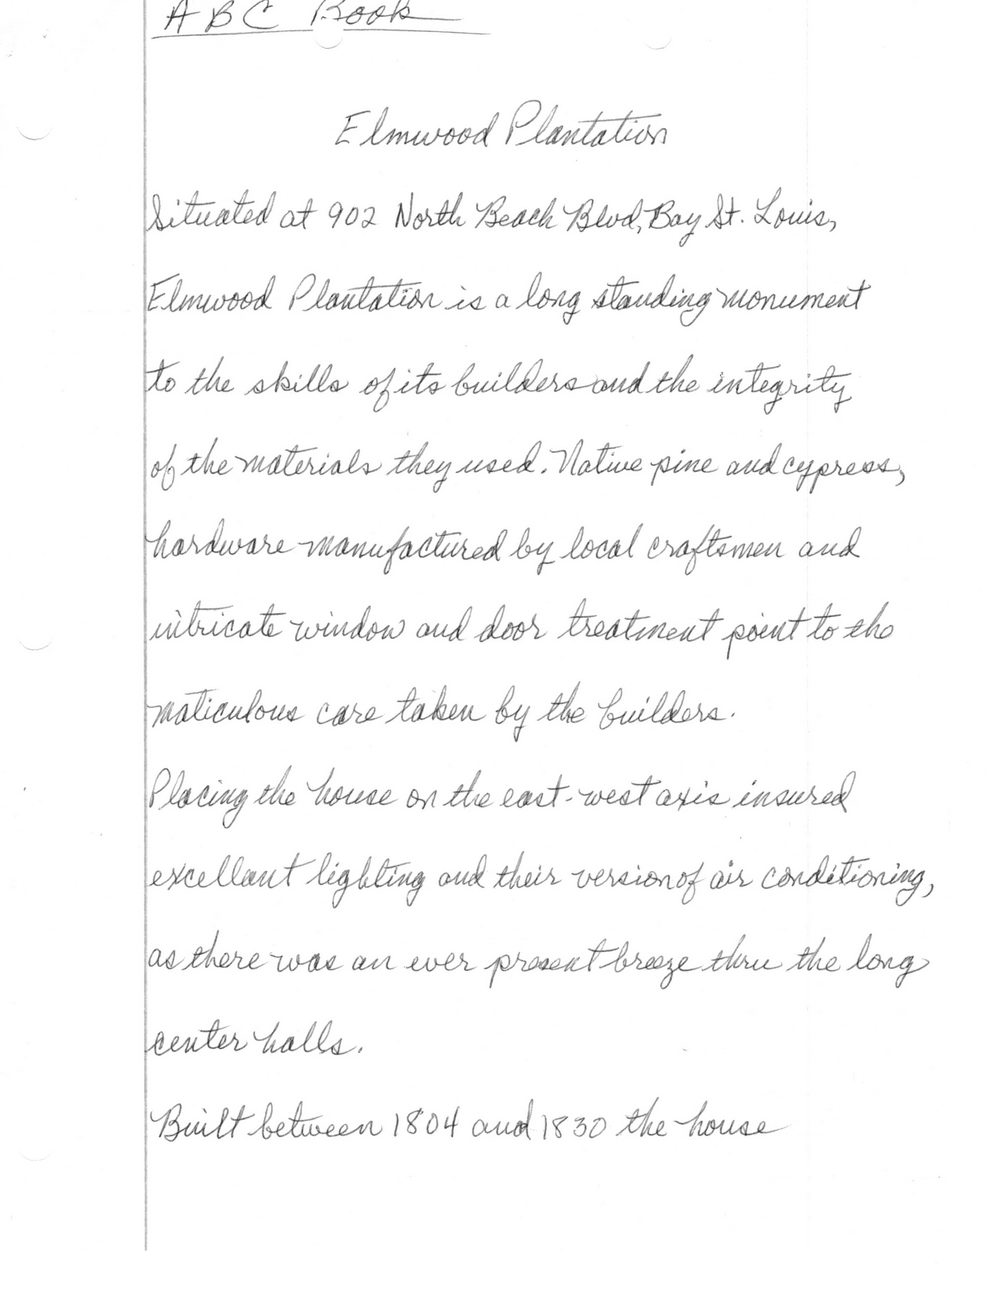 ABC Book
Elmwood Plantation
Situated at 902 North Beach Blvd, Bay St. Louis,
Elmwood Plantation is a long standing monument
to the skills of its builders and the integrity
of the materials they used. Native pine and cypress,
hardware manufactured by local craftsmen and
intricate window and door treatment point to the
maticulous care taken by the builders.
Placing the house on the east-west axis insured
excellant lighting and their version of air conditioning,
as there was an ever present breeze thru the long
center halls.
Built between 1804 and 1830 the house